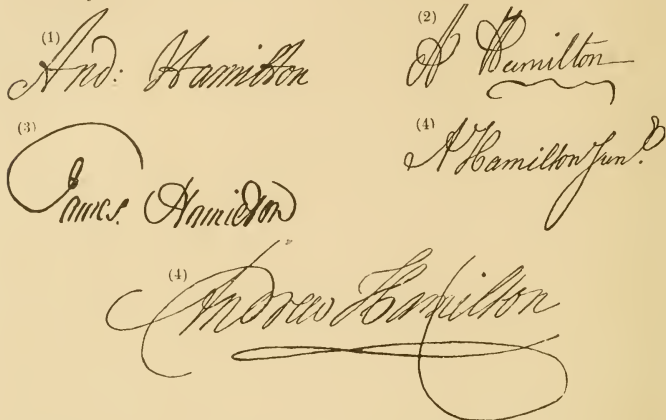 (1)
And: Hamilton
(2)
A Hamilton
(3)
James. Hamilton
(4)
A Hamilton Junr.
(4)
Andrew Hamilton